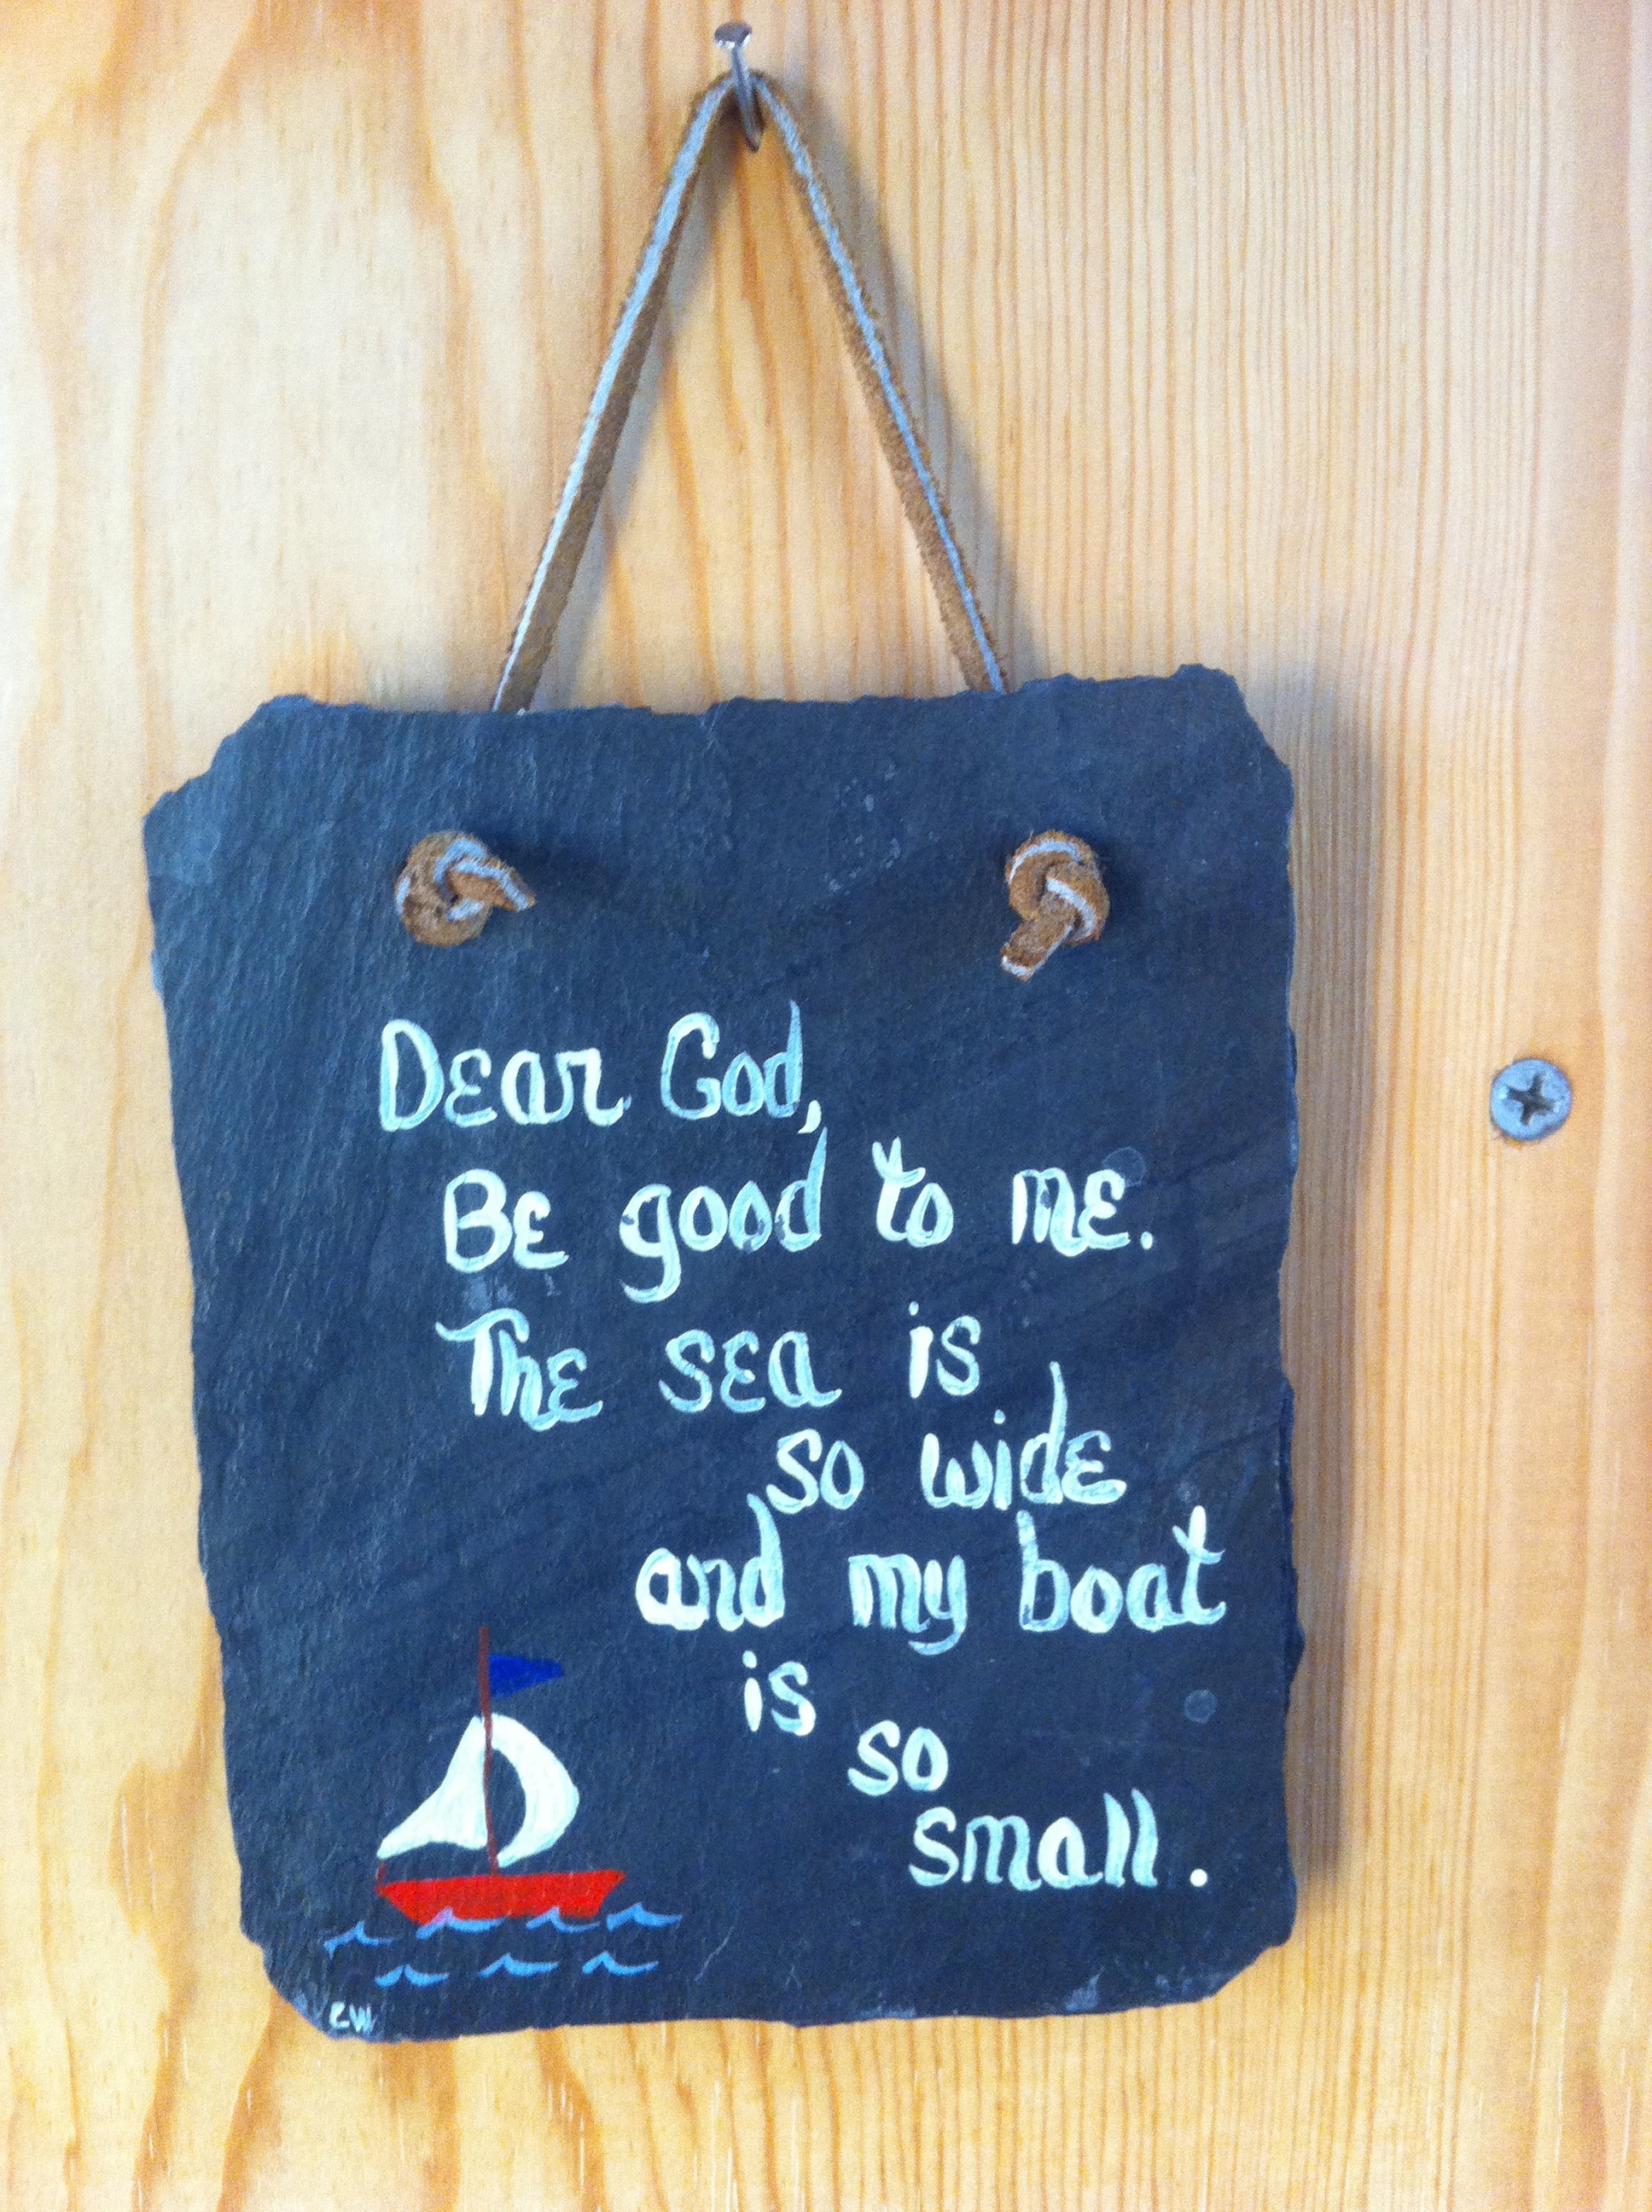 Dear God,
Be good to me.
The sea is
so wide
and my boat
is
so
small.
CW